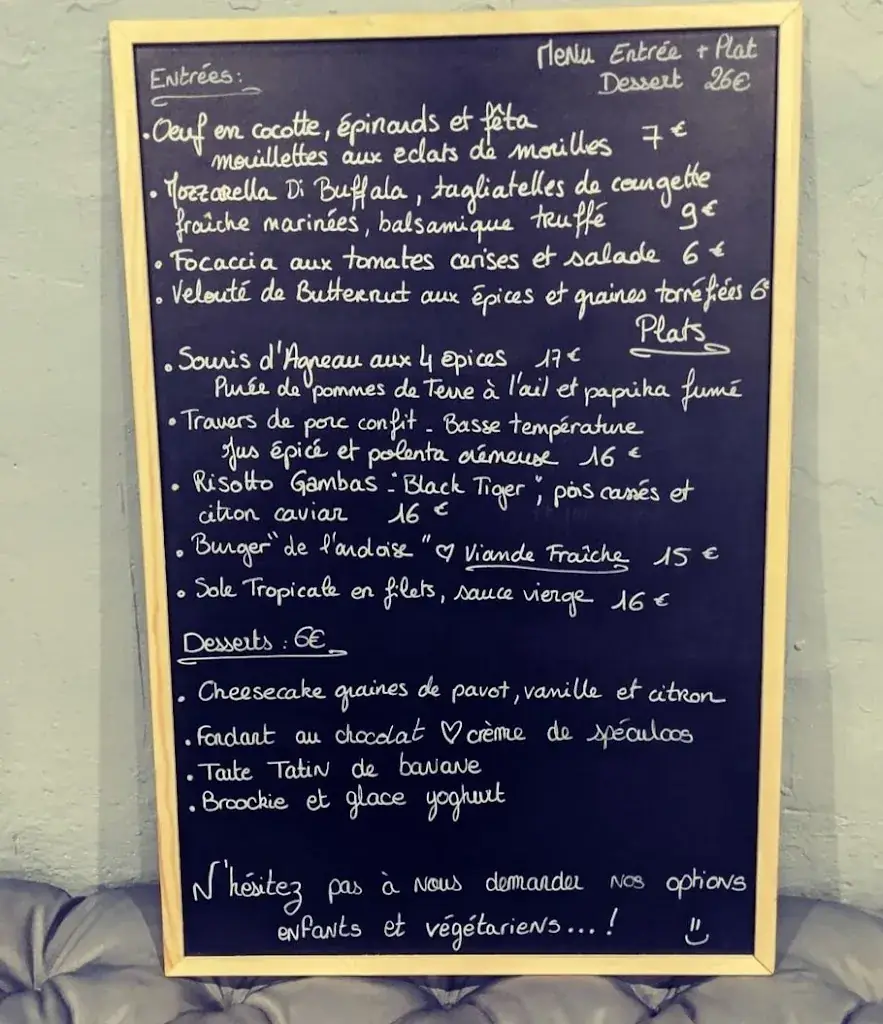 Menu Entrée + Plat
Dessert 26€
Entrées:
• Oeuf en cocotte, épinards et fêta
mouillettes aux eclats de morilles 7€
• Mozzarella Di Buffala, tagliatelles de courgette
fraîche marinées, balsamique truffé 9€
• Focaccia aux tomates cerises et salade 6€
• Velouté de Butternut aux épices et graines torréfiées 6€
Plats
• Souris d'Agneau aux 4 épices 17€
Purée de pommes de Terre à l'ail et paprika fumé
• Travers de porc confit - Basse température
Jus épicé et polenta crémeuse 16€
• Risotto Gambas "Black Tiger", pois cassés et
citron caviar 16€
• Burger "de l'ardoise" ♡ Viande Fraîche 15€
• Sole Tropicale en filets, sauce vierge 16€
Desserts : 6€
• Cheesecake graines de pavot, vanille et citron
• Fondant au chocolat ♡ crème de spéculoos
• Tarte Tatin de banane
• Broockie et glace yoghurt
N'hésitez pas à nous demander nos options
enfants et végétariens...!